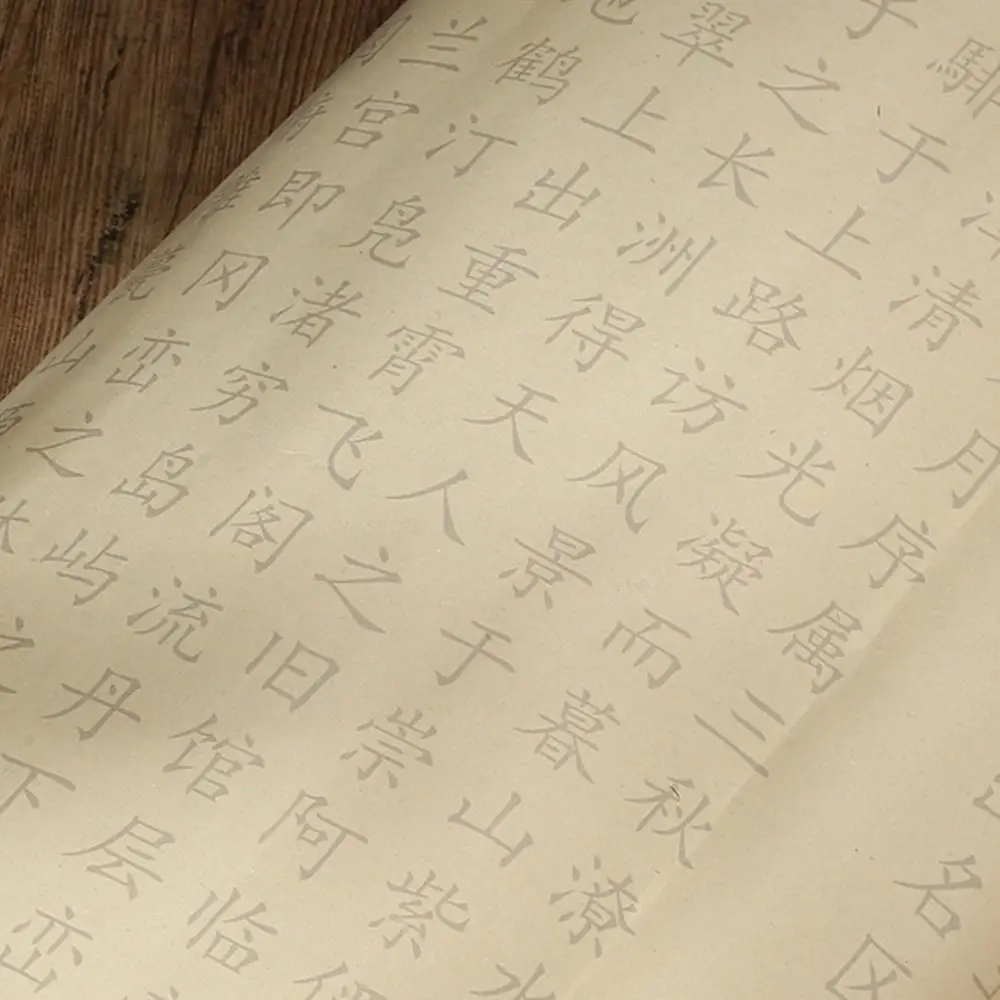 名区
月序属三秋潦水
清烟光凝而暮山紫俨
騑于上路访风景于崇阿临
子之长洲得天人之旧馆层峦
翠上出重霄飞阁流丹下
地鹤汀凫渚穷岛屿之
兰宫即冈峦之体
俯雕甍山原